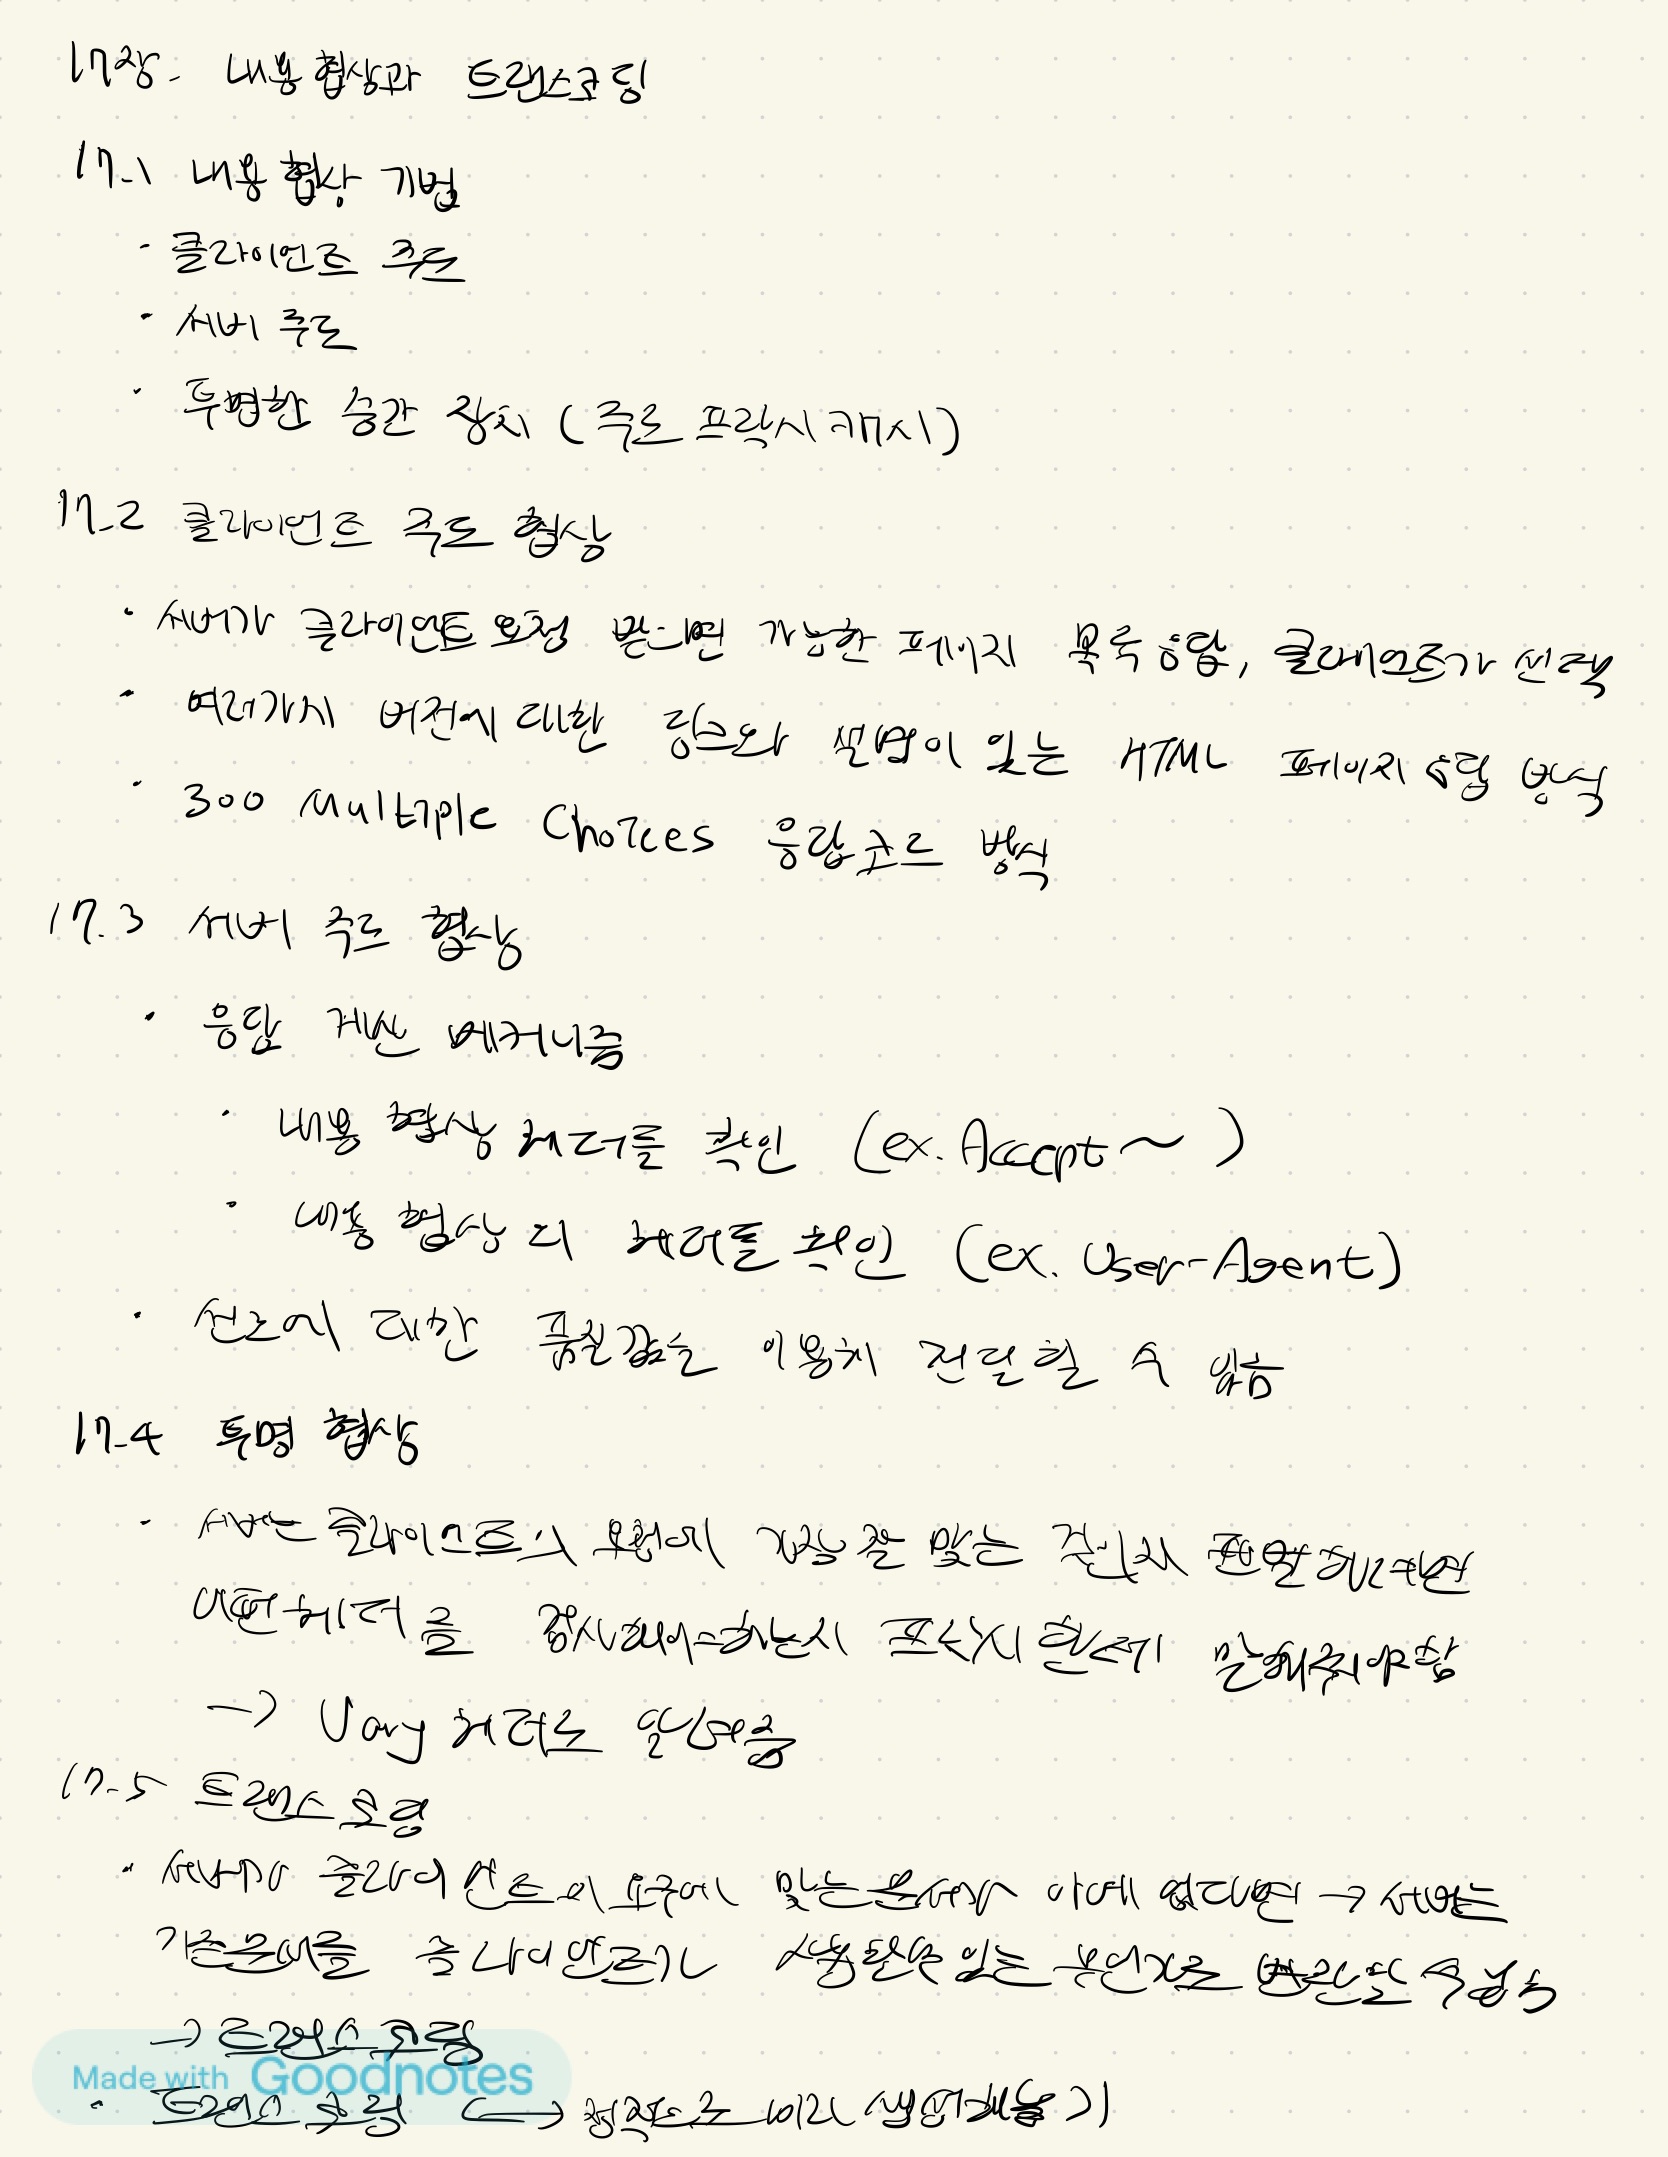 17장. 내용 협상과 트랜스코딩
17.1 내용 협상 기법
· 클라이언트 주도
· 서버 주도
· 투명한 중간 장치 (주로 프락시 캐시)
17.2 클라이언트 주도 협상
· 서버가 클라이언트 요청 받으면 가능한 페이지 목록 응답, 클라이언트가 선택
· 여러가지 버전에 대한 링크와 설명이 있는 HTML 페이지 응답 방식
· 300 Multiple Choices 응답 코드 방식
17.3 서버 주도 협상
· 응답 계산 메커니즘
· 내용 협상 헤더를 확인 (ex. Accept~ )
· 내용 협상 외 헤더를 확인 (ex. User-Agent)
· 선호에 대한 품질값을 이용해 전달할 수 있음
17.4 투명 협상
· 서버는 클라이언트의 요청에 가장 잘 맞는 것인지 판단하려면
어떤 헤더를 검사해야 하는지 프락시한테 말해줘야함
→ Vary 헤더로 알려줌
17.5 트랜스코딩
· 서버가 클라이언트의 요구에 맞는 문서가 아예 없다면 → 서버는
기존 문서를 클라이언트가 사용할 수 있는 무언가로 변환할 수 있음
→ 트랜스코딩
· 트랜스코딩 ↔ 정적으로 미리 생성해놓기
Made with Goodnotes